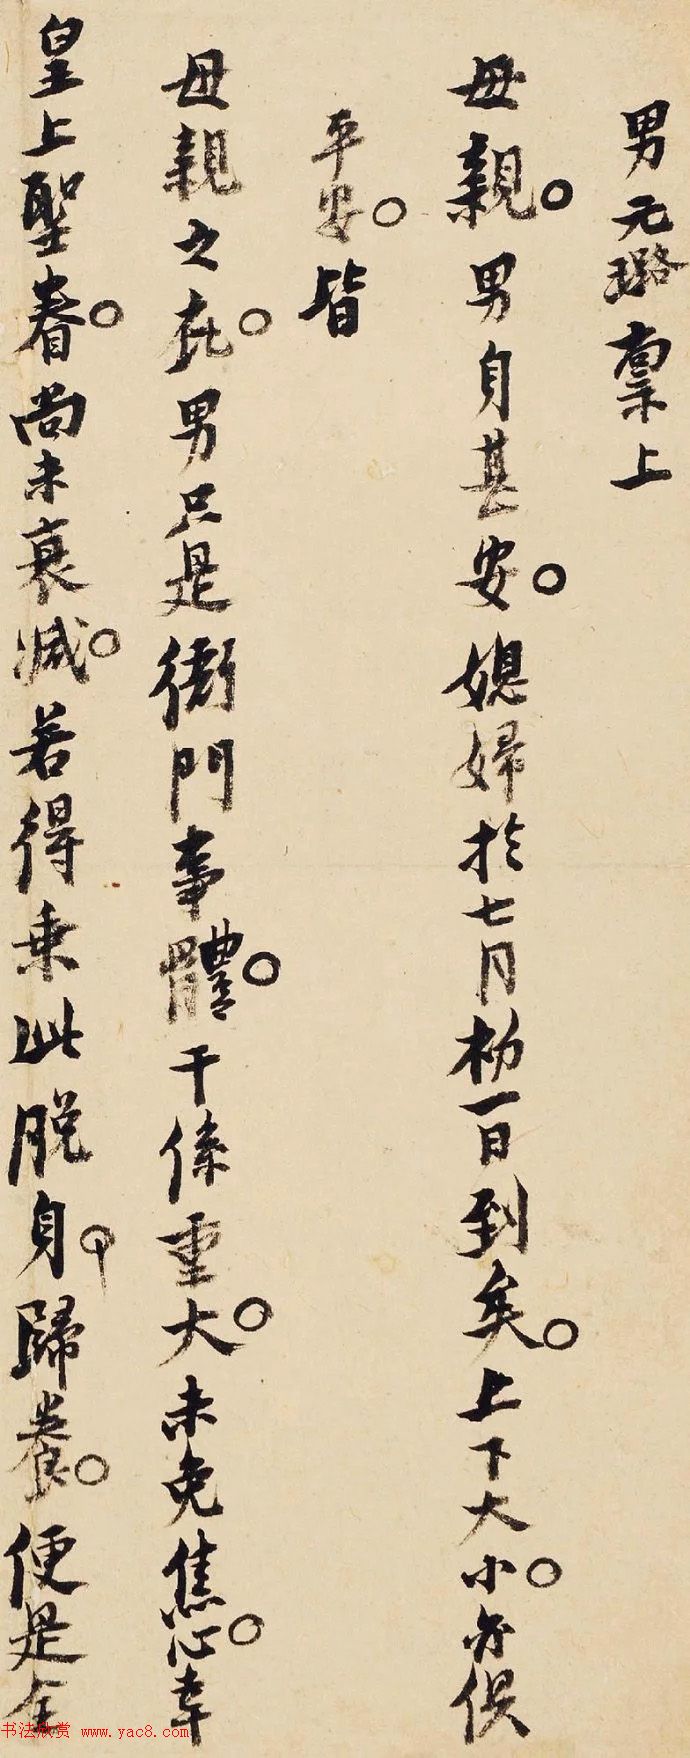 男元璐稟上
母親。男身甚安。媳婦於七月初一日到矣。上下大小。亦俱
平安。皆
母親之庇。男只是衙門事體。干係重大。未免焦心。幸
皇上聖眷。尚未衰減。若得乘此脫身。歸養。便是全
书法欣赏 www.yac8.com